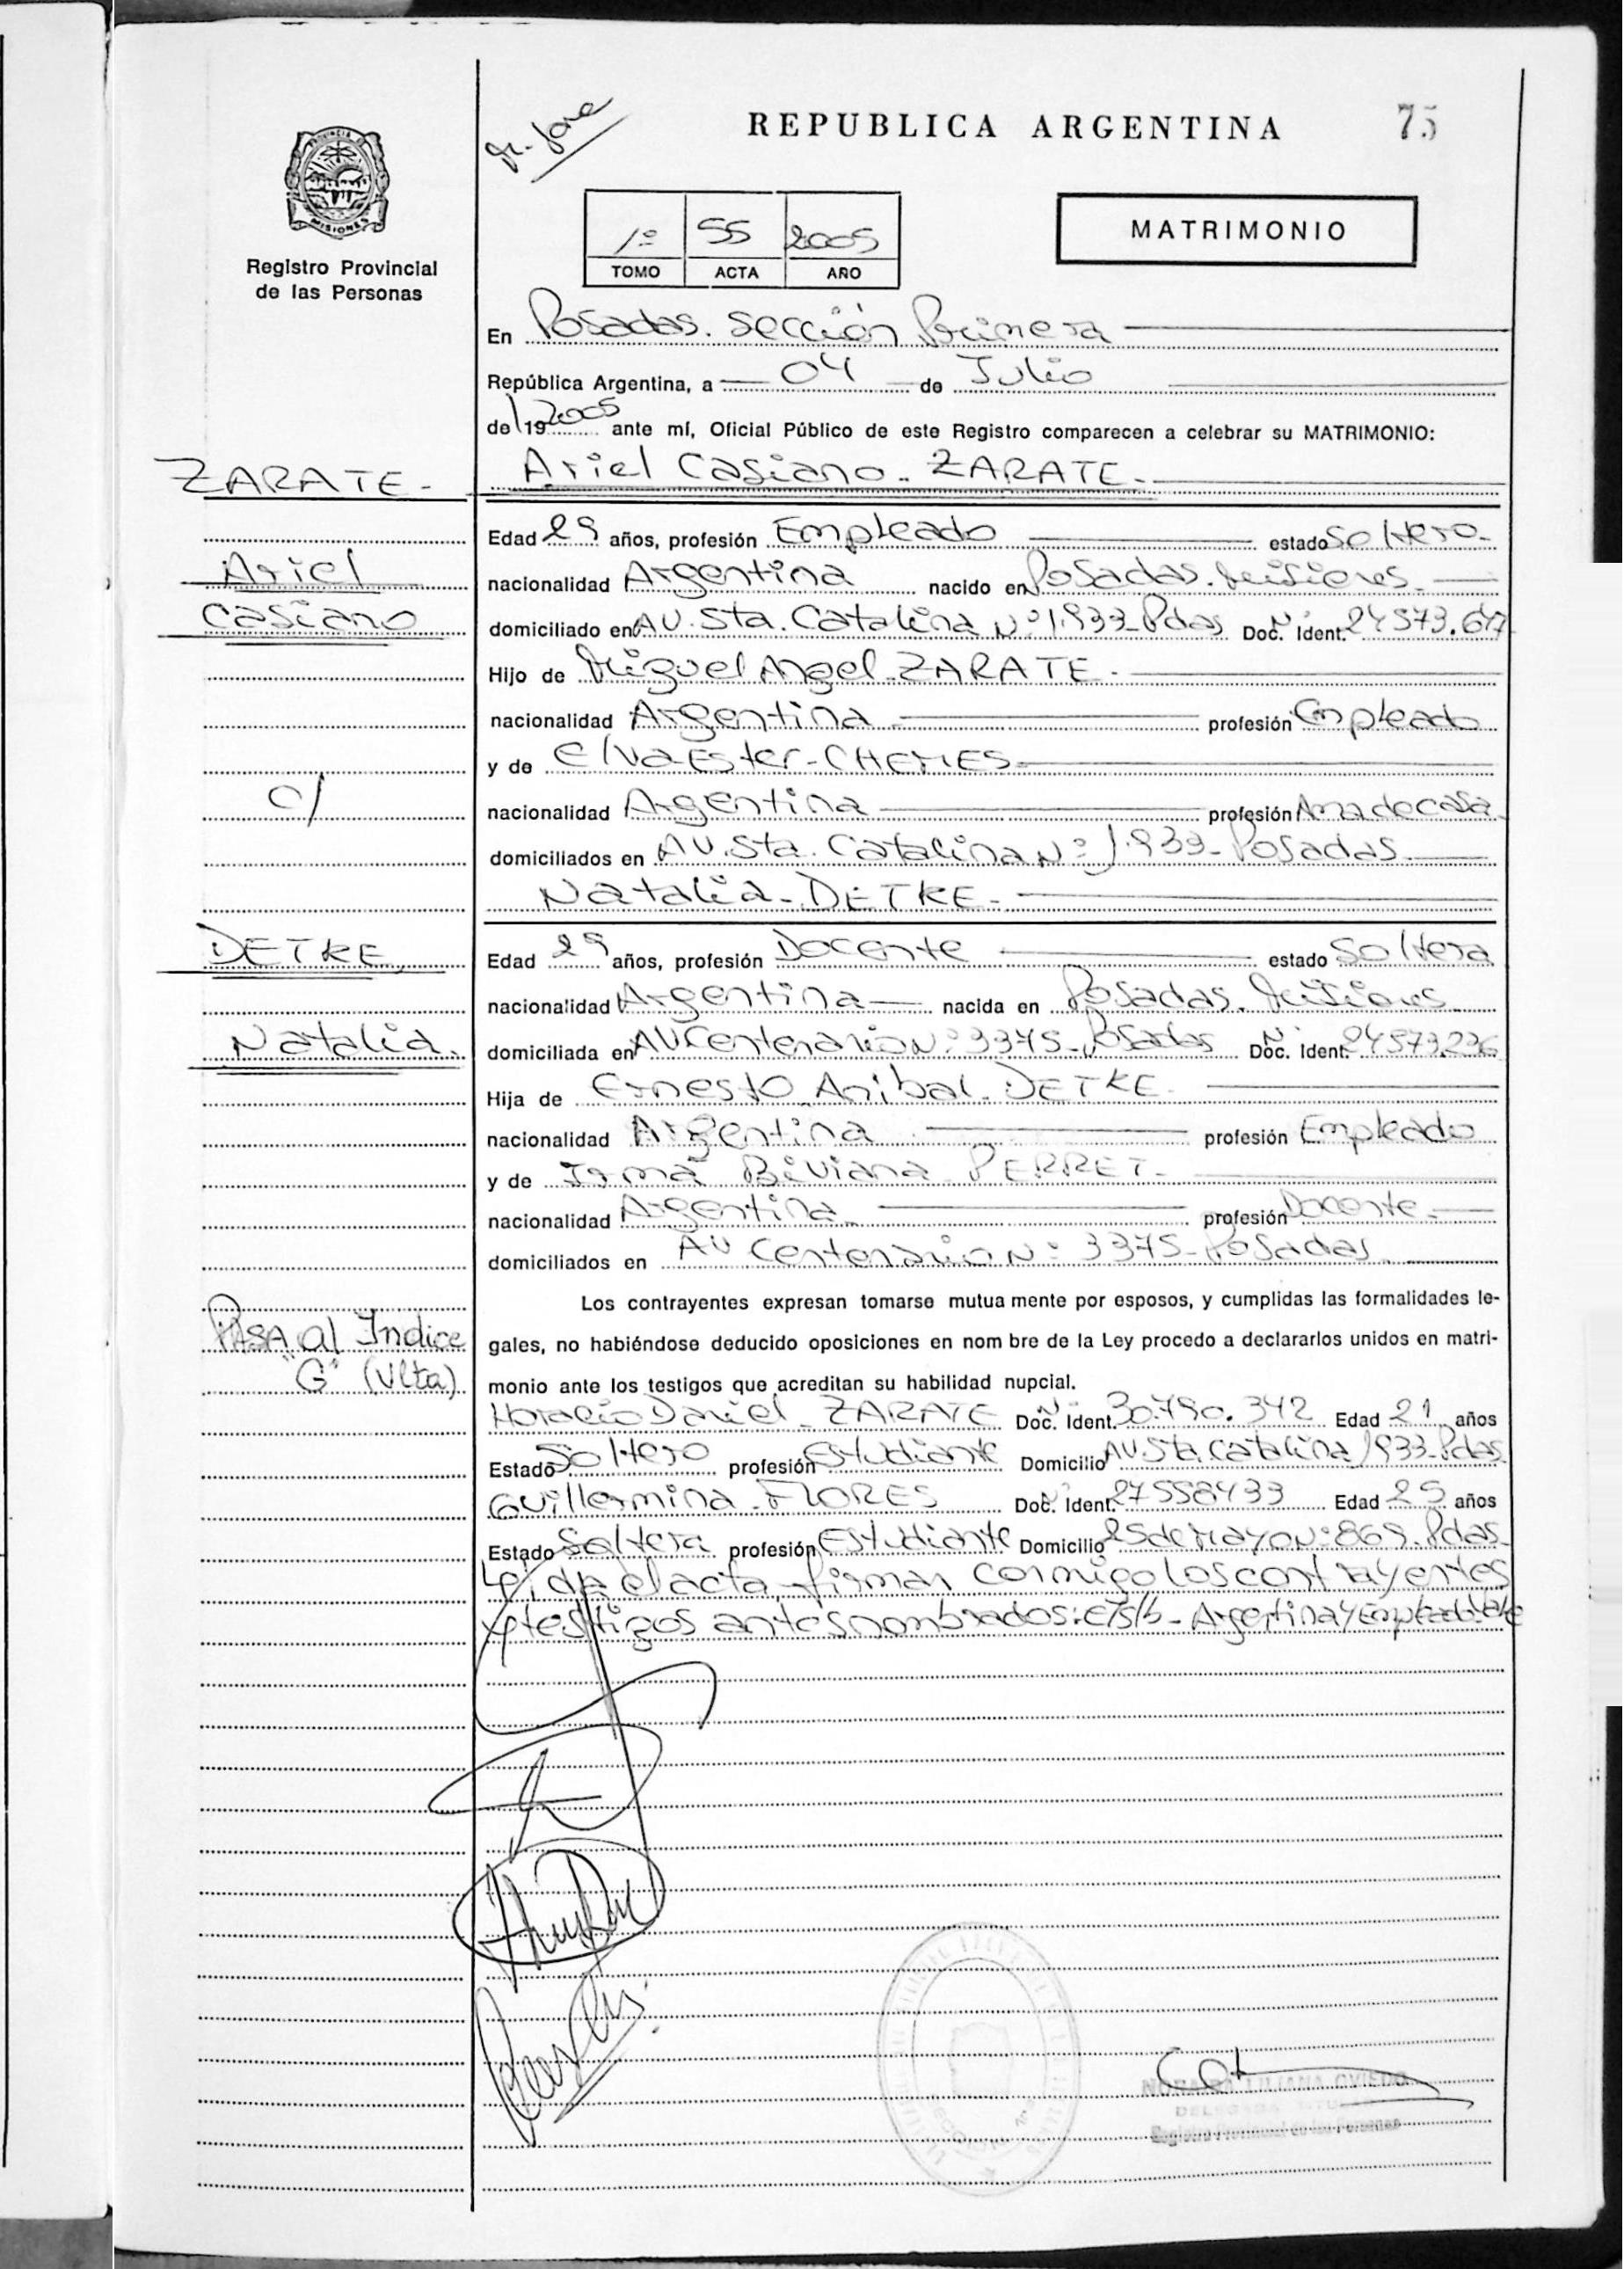 REPUBLICA ARGENTINA 75
PROVINCIA DE
MISIONES
Registro Provincial
de las Personas
1º 55 2005
TOMO ACTA AÑO
MATRIMONIO
En Posadas. Sección Primera
República Argentina, a 04 de Julio
de 19 2005 ante mí, Oficial Público de este Registro comparecen a celebrar su MATRIMONIO:
ZARATE-
Ariel Casiano. ZARATE.
Edad 29 años, profesión Empleado estado Soltero-
Ariel
nacionalidad Argentina nacido en Posadas. Misiones
Casiano
domiciliado en AV. Sta. Catalina Nº 1.933-Pdas Doc. Ident. Nº 24573.617
Hijo de Miguel Angel ZARATE.
nacionalidad Argentina profesión Empleado
y de Elva Ester-CHEMES
c/
nacionalidad Argentina profesión Ama de casa
domiciliados en AV. Sta. Catalina Nº 1.933-Posadas
Natalia-DETKE-
DETKE
Edad 29 años, profesión Docente estado Soltera
nacionalidad Argentina nacida en Posadas. Misiones
Natalia.
domiciliada en AV Centenario Nº 3375-Posadas Doc. Ident. Nº 24573236
Hija de Ernesto Anibal-DETKE
nacionalidad Argentina profesión Empleado
y de Irma Biviana PERRET-
nacionalidad Argentina profesión Docente-
domiciliados en AV Centenario Nº 3375-Posadas
Los contrayentes expresan tomarse mutua mente por esposos, y cumplidas las formalidades le-
PASA al Indice
"G" (Vlta)
gales, no habiéndose deducido oposiciones en nom bre de la Ley procedo a declararlos unidos en matri-
monio ante los testigos que acreditan su habilidad nupcial.
Horacio Daniel-ZARATE Doc. Ident. Nº 30.790.342 Edad 21 años
Estado Soltero profesión Estudiante Domicilio AV. Sta. Catalina 1933-Pdas
Guillermina-FLORES Doc. Ident. Nº 27558433 Edad 25 años
Estado Soltera profesión Estudiante Domicilio 25 de Mayo Nº 869. Pdas
Leida el acta firman conmigo los contrayentes
y testigos antes nombrados: E/S/b-Argentina y Empleado Vale
LILIANA OVIEDO
DELEGADA
Registro Provincial de las Personas